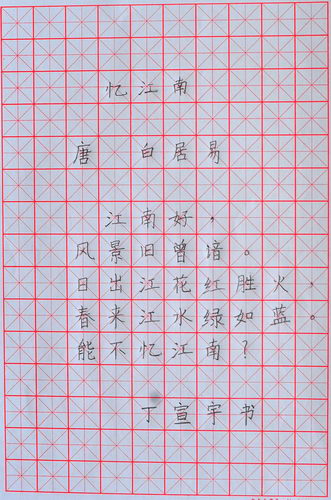 忆江南
唐 白居易
江南好，
风景旧曾谙。
日出江花红胜火，
春来江水绿如蓝。
能不忆江南？
丁宣宇书